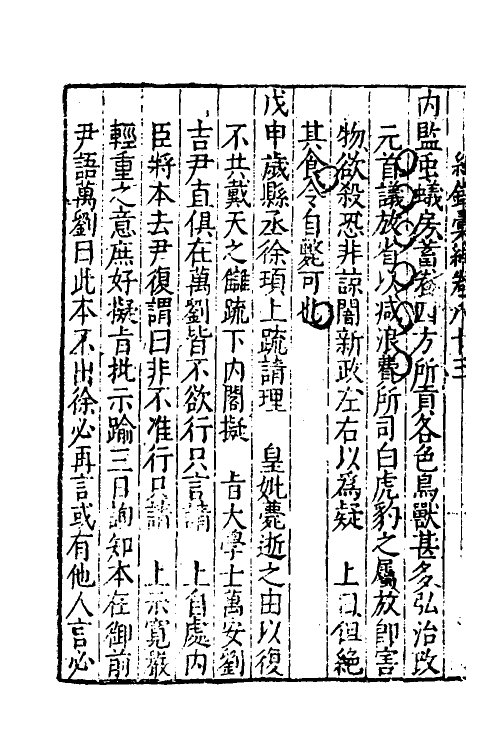 紀錄彙編卷八十三
内監虫蟻房蓄養四方所貢各色鳥獸甚多弘治改
元首議放省以減浪費所司白虎豹之屬放即害
物欲殺恐非諒闇新政左右以爲疑　上曰但絶
其食令自斃可也
戊申歲縣丞徐頊上疏請理　皇妣薨逝之由以復
不共戴天之讎疏下内閣擬　旨大學士萬安劉
吉尹直俱在萬劉皆不欲行只言請　上自處内
臣將本去尹復謂曰非不准行只請　上示寬嚴
輕重之意庶好擬旨批示踰三日詢知本在御前
尹語萬劉曰此本不出徐必再言或有他人言必